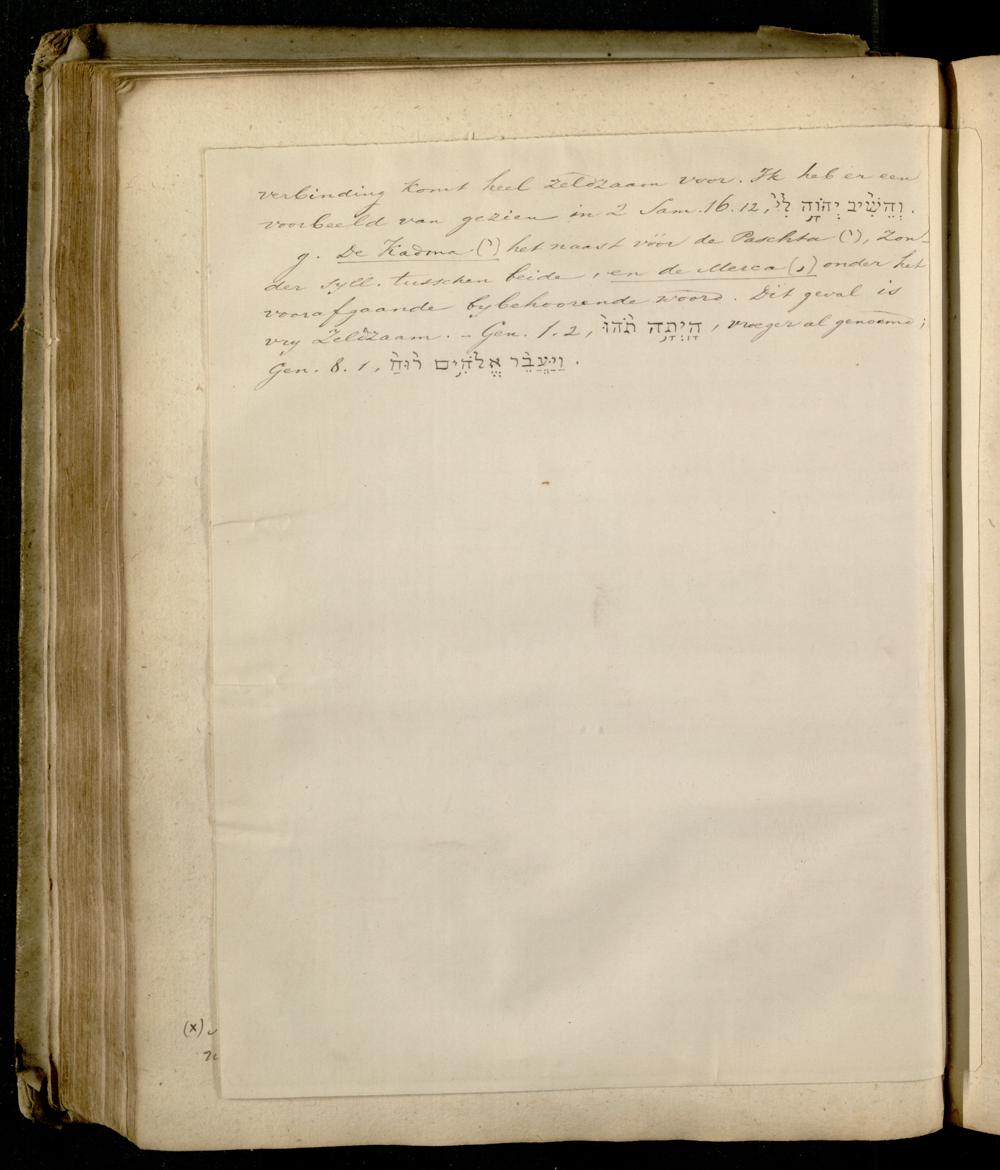 verbinding komt heel zeldzaam voor. Ik heb er een
voorbeeld van gezien in 2 Sam. 16. 12, וְהֵשִׁיב יְהֹוָה לִי֙ .
g. De Kadma (֨) het naast vóór de Paschta (֙), zon-
der syll. tusschen beide, en de Merca (֥) onder het
voorafgaande bybehoorende woord. Dit geval is
vry zeldzaam. – Gen. 1. 2, הָיְתָ֥ה תֹ֨הוּ֙ , vroeger al genoemd;
Gen. 8. 1, וַיַּעֲבֵ֨ר אֱלֹהִ֥ים ר֨וּחַ֙ .
(x)